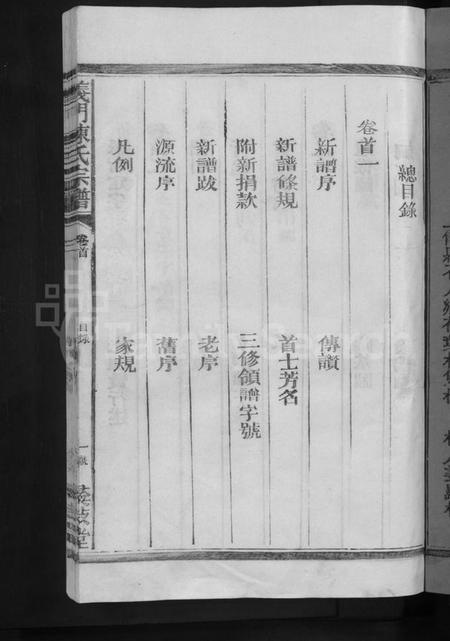 總目錄
卷首一
新譜序
傳讚
新譜條規
首士芳名
附新捐款
三修領譜字號
新譜跋
老序
源流序
舊序
凡例
家規
義門陳氏宗譜
卷首
目錄